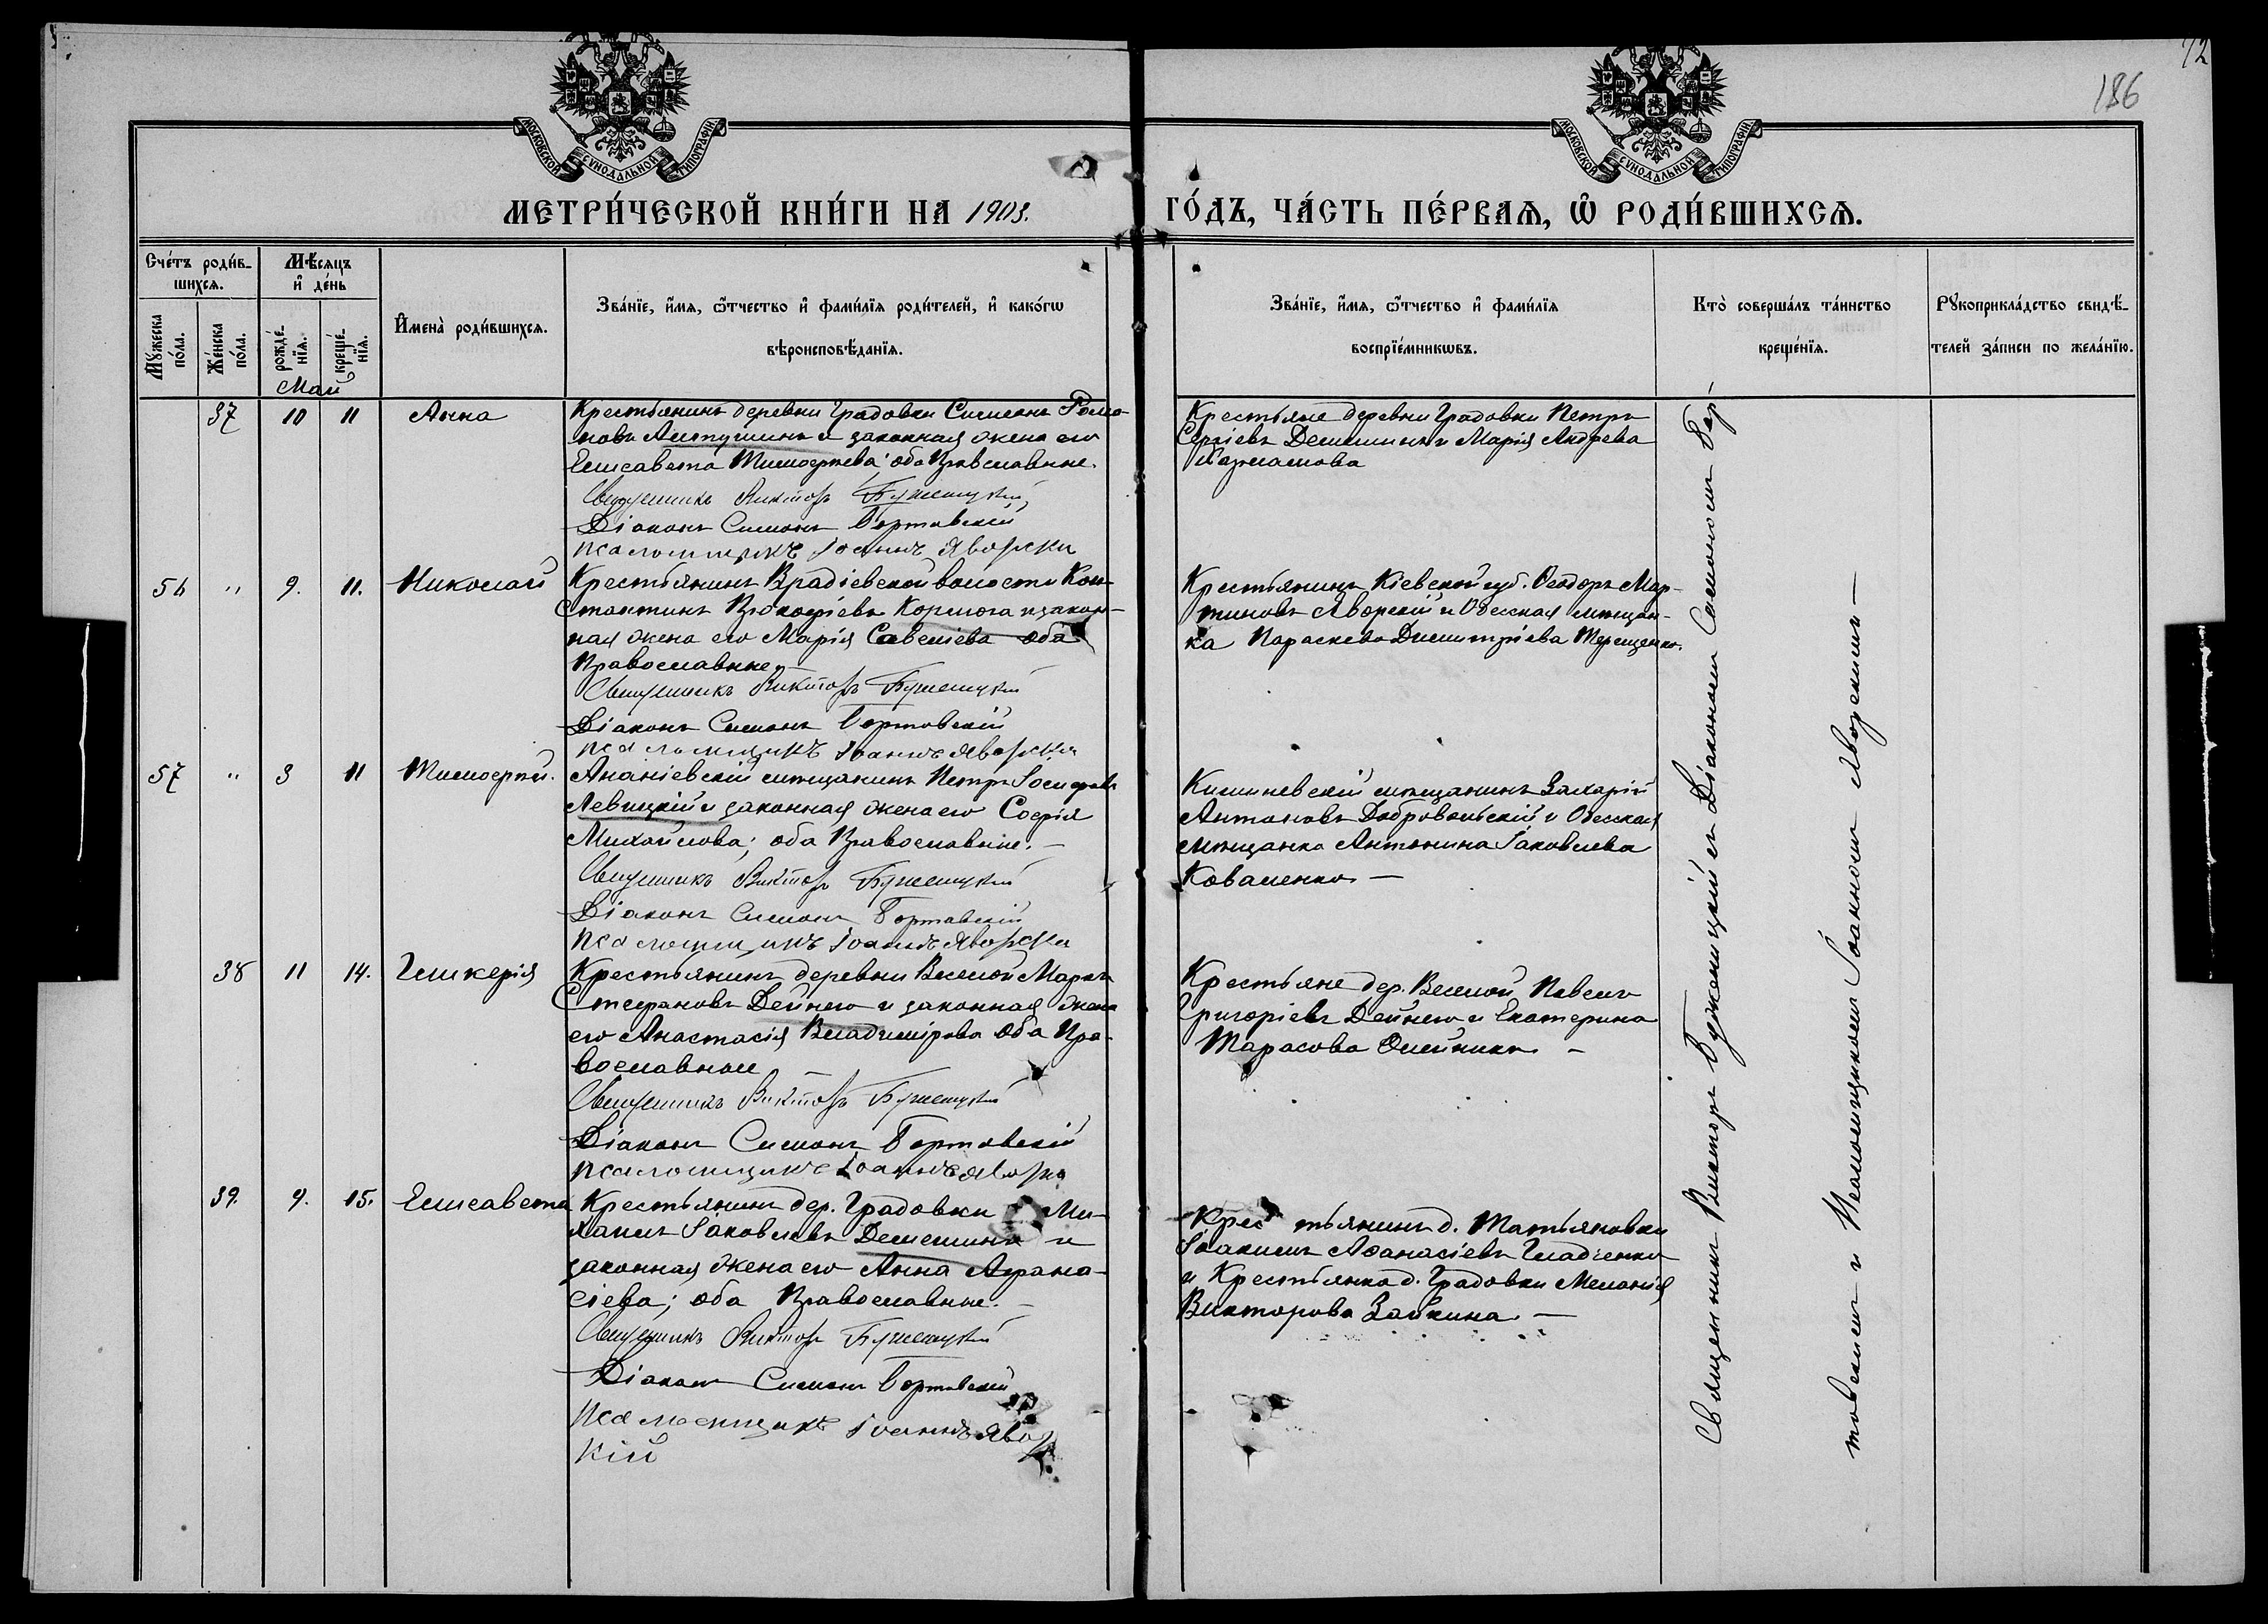 186
МОСКОВСКОЙ СУНОДАЛЬНОЙ ТИПОГРАФІИ
МОСКОВСКОЙ СУНОДАЛЬНОЙ ТИПОГРАФІИ
МЕТРИ́ЧЕСКОЙ КНИ́ГИ НА 1903.
ГО́ДЪ, ЧА́СТЬ ПЕ́РВАѦ, Ѡ҆ РОДИ́ВШИХСѦ.
Счéтъ роди́в-
шихсѧ.
Мꙋ́жеска по́ла.
Же́нска по́ла.
Мѣ́сѧцъ
и҆ де́нь
рожде́-
нїѧ.
креще́-
нїѧ.
И҆мена̀ роди́вшихсѧ.
Зва́нїе, и҆́мѧ, ѻ҆́тчество и҆ фами́лїѧ роди́телей, и҆ како́гѡ
вѣроисповѣ́данїѧ.
Зва́нїе, и҆́мѧ, ѻ҆́тчество и҆ фами́лїѧ
воспрїе́мникѡвъ.
Кто̀ соверша́лъ та́инство
креще́нїѧ.
Рꙋкоприкла́дство свидѣ́-
телей за́писи по жела́нїю.
Май
37 10 11 Анна
Крестьянинъ деревни Градовки Симеонъ Рома-
новъ и законная жена его
Елисавета Тимофеева; оба Православные.
Священникъ Викторъ Бужемицкій
Діаконъ Симонъ Бортовскій
Псаломщикъ Іоаннъ Яворскій
Крестьяне деревни Градовки Петръ
Сергіевъ и Марія Андреева
56 " 9. 11. Николай
Крестьянинъ Врадіевской волости Кон-
стантинъ Прокофіевъ и закон-
ная жена его Марія Савеліева оба
Православные.—
Священникъ Викторъ Бужемицкій
Діаконъ Симонъ Бортовскій
Псаломщикъ Іоаннъ Яворскій
Крестьянинъ Кіевской губ. Феодоръ Мар-
тиновъ Яворскій и Одесская мѣщан-
ка Параскева Димитріева Терещенко.
57 " 3 11 Тимофей.
Ананіевскій мѣщанинъ Петръ Іосифовъ
Левицкій и законная жена его Софія
Михайлова; оба Православные.—
Священникъ Викторъ Бужемицкій
Діаконъ Симонъ Бортовскій
Псаломщикъ Іоаннъ Яворскій
Кишиневскій мѣщанинъ Захарій
Антоновъ Добровольскій и Одесская
мѣщанка Антонина Іаковлева
Коваленко—
38 11 14. Гликерія
Крестьянинъ деревни Веселой Маркъ
Стефановъ Дейнего и законная жена
его Анастасія Владимірова оба Пра-
вославные
Священникъ Викторъ Бужемицкій
Діаконъ Симонъ Бортовскій
Псаломщикъ Іоаннъ Яворс
Крестьяне дер. Веселой Павелъ
Григоріевъ Дейнего и Екатерина
Тарасова Олейникъ—
39. 9. 15. Елисавета
Крестьянинъ дер. Градовки Ми-
хаилъ Іаковлевъ и
законная жена его Анна Афана-
сіева; оба Православные.—
Священникъ Викторъ Бужемицкій
Діаконъ Симонъ Бортовскій
Псаломщикъ Іоаннъ Яворс
кій
Крестьянинъ д. Татьяновки
Іоакимъ Афанасіевъ Гладченко
и Крестьянка д. Градовки Меланія
Викторова Заикина—
Священникъ Викторъ Бужемицкій съ Діакономъ Симономъ Бор-
товскимъ и Псаломщикомъ Іоанномъ Яворскимъ—